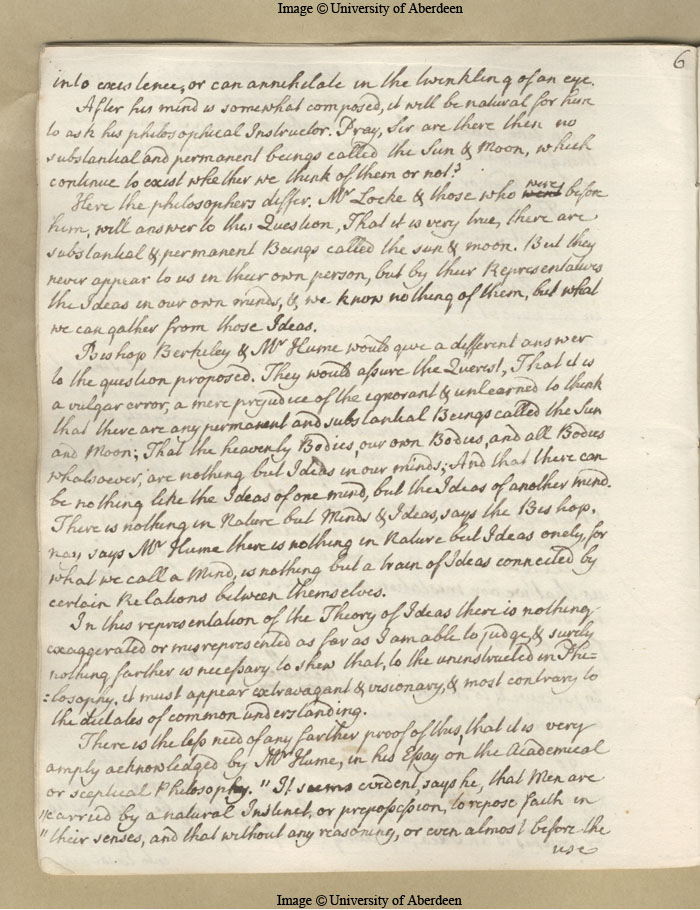 Image © University of Aberdeen
6
into existence, or can annihilate in the twinkling of an eye.
After his mind is somewhat composed, it will be natural for him
to ask his philosophical Instructor. Pray, Sir are there then no
substantial and permanent beings called the Sun & Moon, which
continue to exist whether we think of them or not?
Here the philosophers differ. Mr Locke & those who were before
him, will answer to this Question, That it is very true, there are
substantial & permanent Beings called the sun & moon. But they
never appear to us in their own person, but by their Representatives
the Ideas in our own minds, & we know nothing of them, but what
we can gather from those Ideas.
Bishop Berkeley & Mr Hume would give a different answer
to the question proposed. They would assure the Querist, That it is
a vulgar error, a mere prejudice of the ignorant & unlearned to think
that there are any permanent and substantial Beings called the Sun
and Moon; That the heavenly Bodies, our own Bodies, and all Bodies
whatsoever, are nothing but Ideas in our minds; And that there can
be nothing like the Ideas of one mind, but the Ideas of another mind.
There is nothing in Nature but Minds & Ideas, says the Bishop,
nay, says Mr Hume there is nothing in Nature but Ideas onely, for
what we call a Mind, is nothing but a train of Ideas connected by
certain Relations between themselves.
In this representation of the Theory of Ideas there is nothing
exaggerated or misrepresented as far as I am able to judge, & surely
nothing farther is necessary to shew that, to the uninstructed in Phi=
=losophy, it must appear extravagant & visionary, & most contrary to
the dictates of common understanding.
There is the less need of any farther proof of this, that it is very
amply acknowledged by Mr Hume, in his Essay on the Academical
or sceptical Philosophy. "It seems evident, says he, that Men are
"carried by a natural Instinct, or prepossession, to repose faith in
"their senses, and that without any reasoning, or even almost before the
use
Image © University of Aberdeen